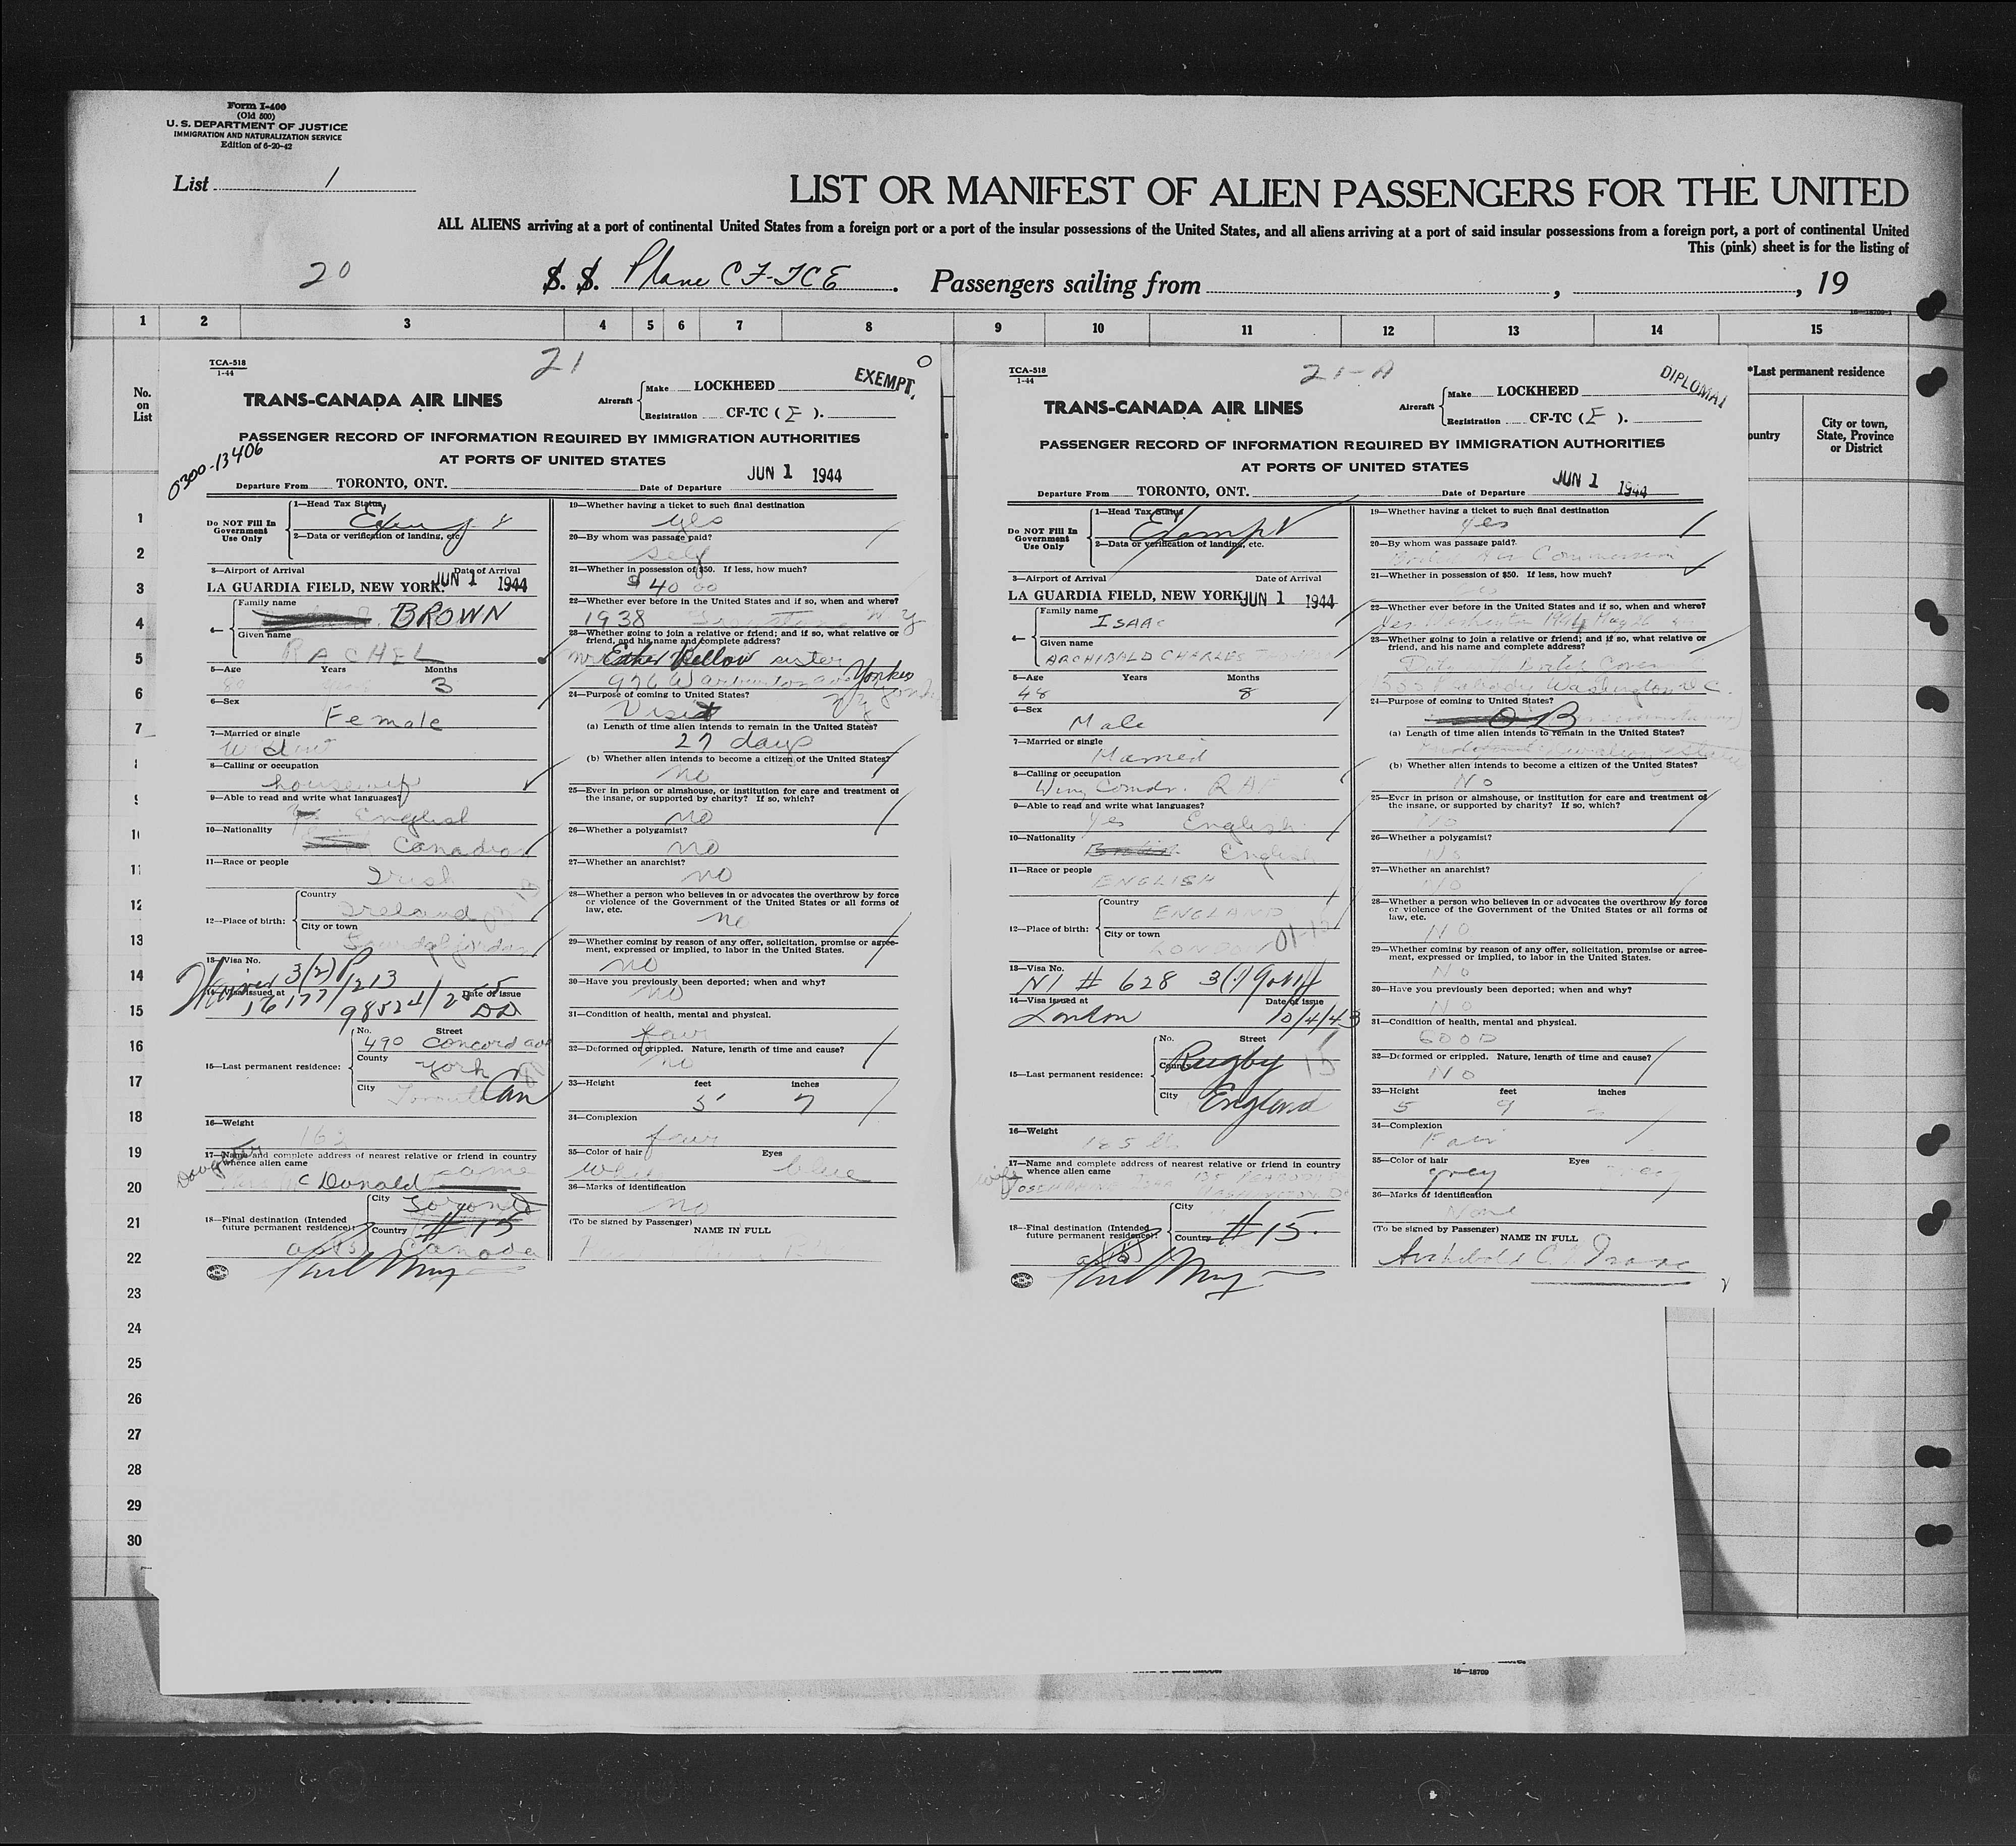 Form I-400
(Old 500)
U. S. DEPARTMENT OF JUSTICE
IMMIGRATION AND NATURALIZATION SERVICE
Edition of 6-20-42
List 1
LIST OR MANIFEST OF ALIEN PASSENGERS FOR THE UNITED
ALL ALIENS arriving at a port of continental United States from a foreign port or a port of the insular possessions of the United States, and all aliens arriving at a port of said insular possessions from a foreign port, a port of continental United
This (pink) sheet is for the listing of
20 S. S. Plane CF-TCE . Passengers sailing from , , 19
1 2 3 4 5 6 7 8 9 10 11 12 13 14 15
No. on List
*Last permanent residence
ountry
City or town, State, Province or District
TCA-518
1-44
21
EXEMPT.
TRANS-CANADA AIR LINES
Aircraft Make LOCKHEED
Registration CF-TC ( E ).
PASSENGER RECORD OF INFORMATION REQUIRED BY IMMIGRATION AUTHORITIES
AT PORTS OF UNITED STATES
0300-13406
Departure From TORONTO, ONT. Date of Departure JUN 1 1944
Do NOT Fill In Government Use Only
1—Head Tax Status,
2—Data or verification of landing, etc.
3—Airport of Arrival Date of Arrival
LA GUARDIA FIELD, NEW YORK. JUN 1 1944
4— Family name BROWN
Given name RACHEL
5—Age Years Months 3
6—Sex Female
7—Married or single
8—Calling or occupation housewife
9—Able to read and write what languages? English
10—Nationality Canadian
11—Race or people Irish
12—Place of birth: Country Ireland
City or town
13—Visa No. Waiver 3(2) P
14—Visa issued at Date of issue
15—Last permanent residence: No. Street 490 Concord ave
County York
City Toronto Can
16—Weight 163
17—Name and complete address of nearest relative or friend in country whence alien came
Daughter McDonald same
18—Final destination (Intended future permanent residence): City Toronto
Country #15
Canada
19—Whether having a ticket to such final destination yes
20—By whom was passage paid? self
21—Whether in possession of $50. If less, how much? $40 00
22—Whether ever before in the United States and if so, when and where? 1938
23—Whether going to join a relative or friend; and if so, what relative or friend, and his name and complete address?
sister
976 Warburton ave Yonkers
24—Purpose of coming to United States? Visit
(a) Length of time alien intends to remain in the United States? 27 days
(b) Whether alien intends to become a citizen of the United States? no
25—Ever in prison or almshouse, or institution for care and treatment of the insane, or supported by charity? If so, which? no
26—Whether a polygamist? no
27—Whether an anarchist? no
28—Whether a person who believes in or advocates the overthrow by force or violence of the Government of the United States or all forms of law, etc. no
29—Whether coming by reason of any offer, solicitation, promise or agreement, expressed or implied, to labor in the United States. no
30—Have you previously been deported; when and why? no
31—Condition of health, mental and physical. fair
32—Deformed or crippled. Nature, length of time and cause? no
33—Height feet inches 5' 7
34—Complexion fair
35—Color of hair Eyes white blue
36—Marks of identification no
(To be signed by Passenger) NAME IN FULL
TCA-518
1-44
21-A
DIPLOMAT
TRANS-CANADA AIR LINES
Aircraft Make LOCKHEED
Registration CF-TC ( E ).
PASSENGER RECORD OF INFORMATION REQUIRED BY IMMIGRATION AUTHORITIES
AT PORTS OF UNITED STATES
Departure From TORONTO, ONT. Date of Departure JUN 1 1944
Do NOT Fill In Government Use Only
1—Head Tax Status Exempt
2—Data or verification of landing, etc.
3—Airport of Arrival Date of Arrival
LA GUARDIA FIELD, NEW YORK JUN 1 1944
4— Family name ISAAC
Given name ARCHIBALD CHARLES
5—Age Years Months 48 8
6—Sex Male
7—Married or single Married
8—Calling or occupation Wing Comdr. RAF
9—Able to read and write what languages? Yes English
10—Nationality British English
11—Race or people ENGLISH
12—Place of birth: Country ENGLAND
City or town LONDON
13—Visa No. NI # 628 3(1)
14—Visa issued at Date of issue
London 10/4/43
15—Last permanent residence: No. Street
County Rugby 15
City England
16—Weight 185 lb
17—Name and complete address of nearest relative or friend in country whence alien came
wife
18—Final destination (Intended future permanent residence): City
Country #15.
19—Whether having a ticket to such final destination Yes
20—By whom was passage paid? British Air Commission
21—Whether in possession of $50. If less, how much?
22—Whether ever before in the United States and if so, when and where? Yes Washington 1944 May 26
23—Whether going to join a relative or friend; and if so, what relative or friend, and his name and complete address?
Peabody Washington D.C.
24—Purpose of coming to United States? OB
(a) Length of time alien intends to remain in the United States?
(b) Whether alien intends to become a citizen of the United States? No
25—Ever in prison or almshouse, or institution for care and treatment of the insane, or supported by charity? If so, which? No
26—Whether a polygamist? No
27—Whether an anarchist? No
28—Whether a person who believes in or advocates the overthrow by force or violence of the Government of the United States or all forms of law, etc. NO
29—Whether coming by reason of any offer, solicitation, promise or agreement, expressed or implied, to labor in the United States. No
30—Have you previously been deported; when and why? No
31—Condition of health, mental and physical. GOOD
32—Deformed or crippled. Nature, length of time and cause? No
33—Height feet inches 5 9
34—Complexion Fair
35—Color of hair Eyes grey
36—Marks of identification None
(To be signed by Passenger) NAME IN FULL
Archibald C. Isaac
1
2
3
4
5
6
7
9
10
11
12
13
14
15
16
17
18
19
20
21
22
23
24
25
26
27
28
29
30
16—18709